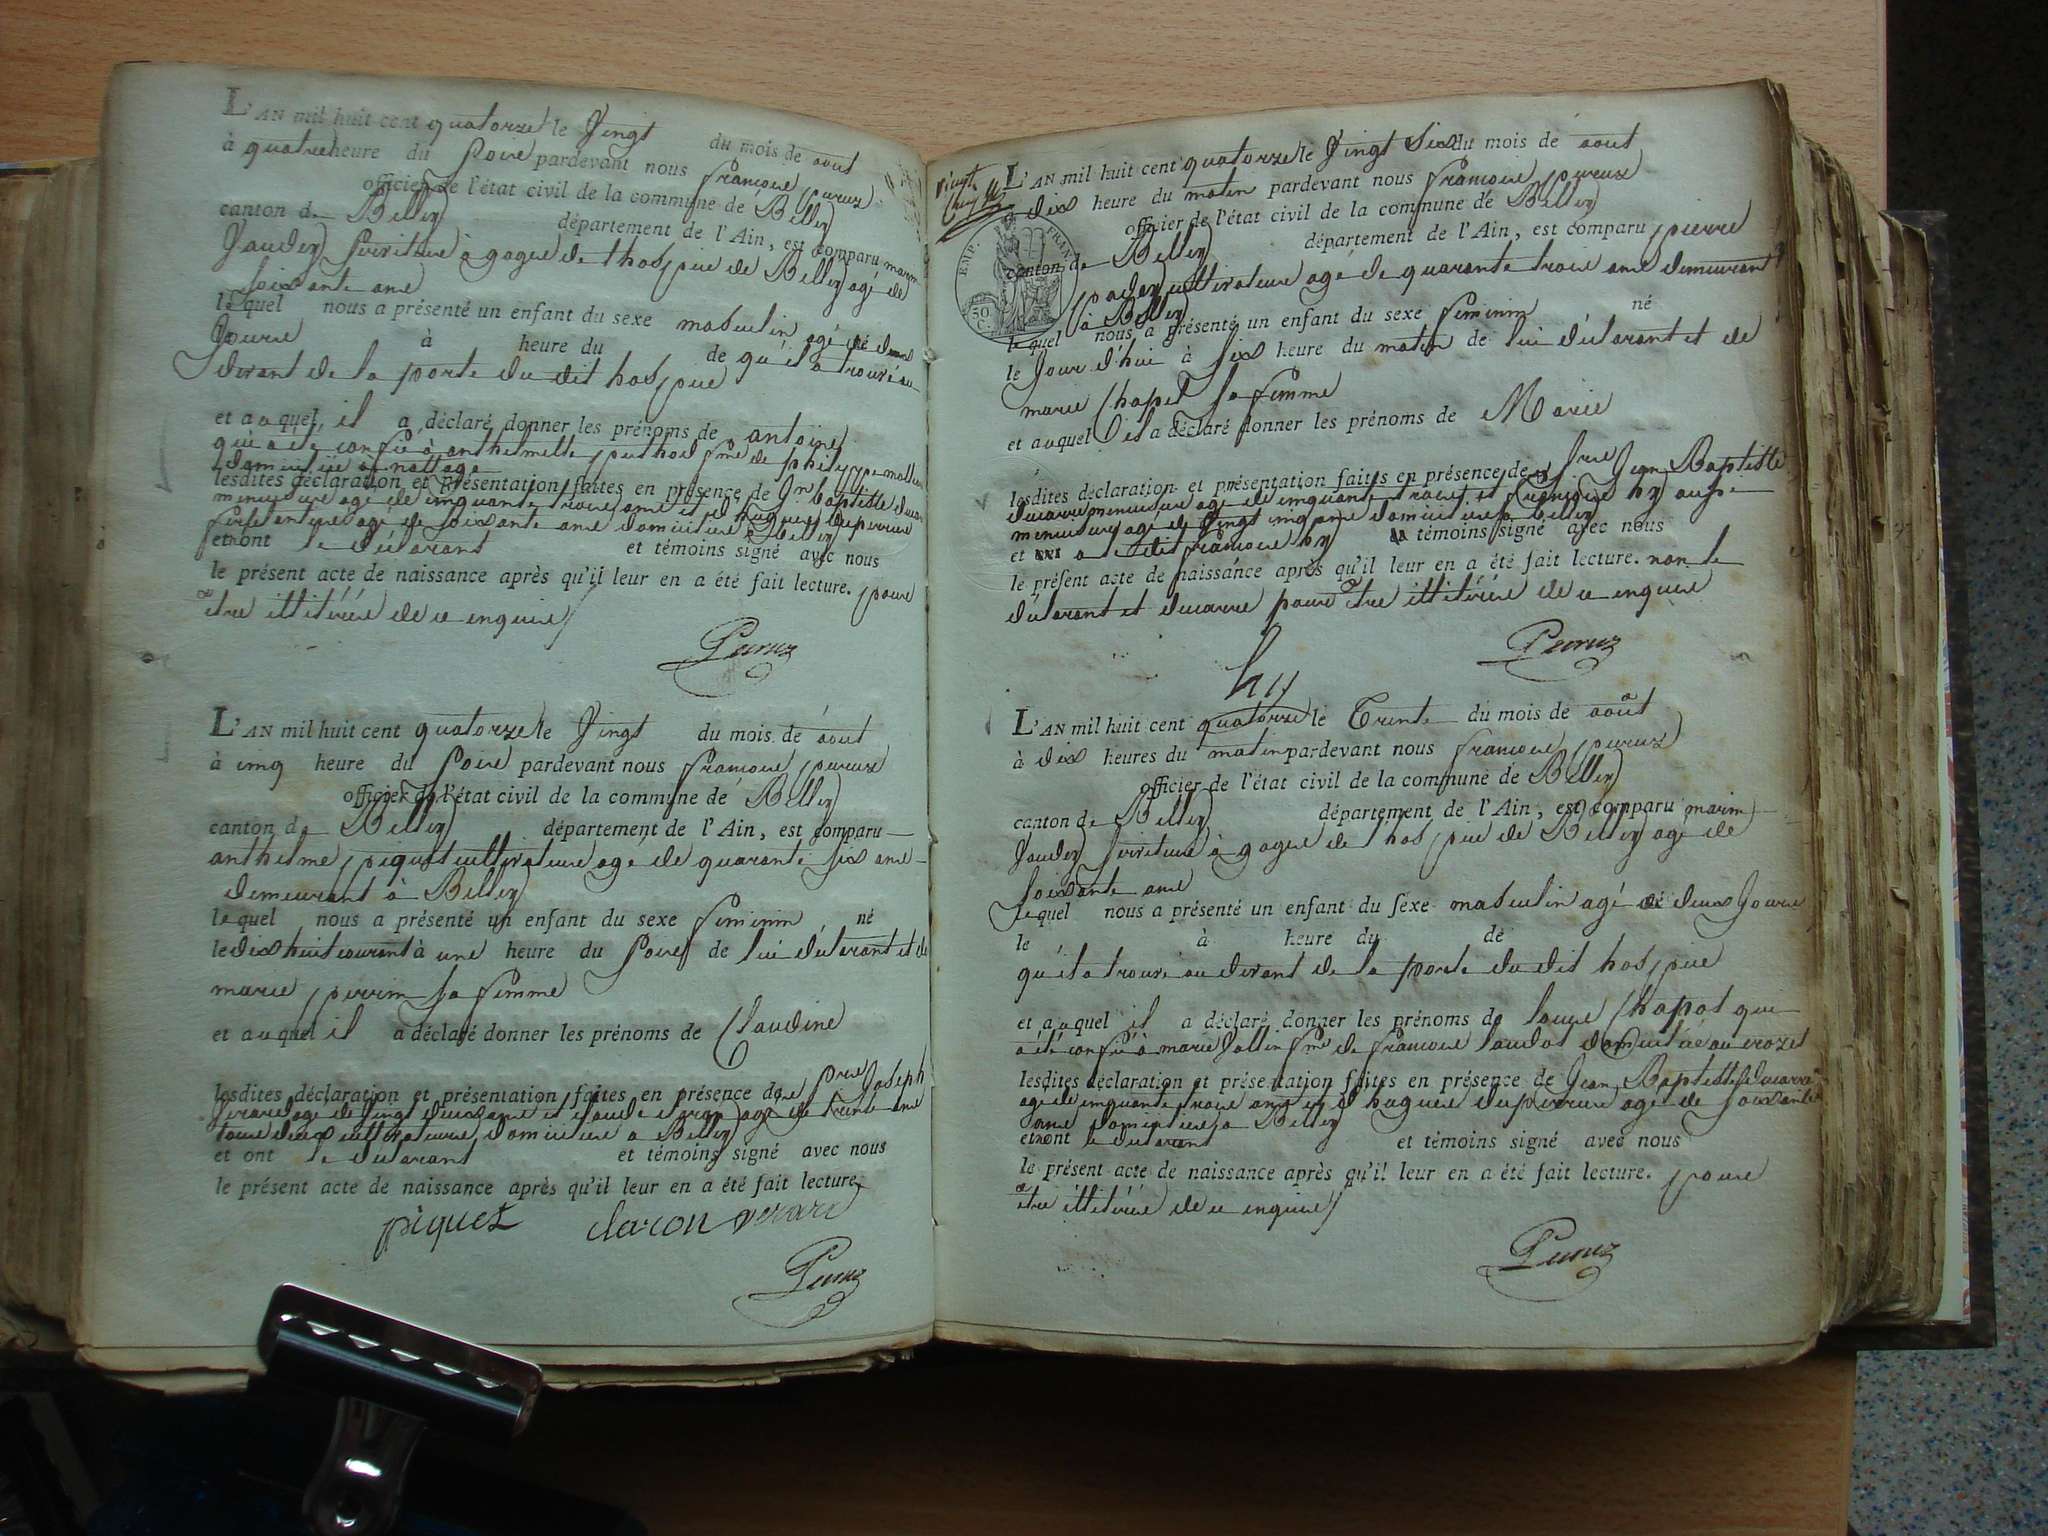 L'AN mil huit cent quatorze le Vingt du mois de aout
à quatre heure du Soire pardevant nous francois peruse
officier de l'état civil de la commune de Belley
canton de Belley département de l'Ain, est comparu marin
à gage de lhospice de Belley agé de
Soixante ans
lequel nous a présenté un enfant du sexe masculin agé de deux
Jours à heure du de qu'il a trouvé au
devant de la porte du dit hospice
et auquel il a déclaré donner les prénoms de antoine
qui a été confié à anthelmette fme de philippe
domicilié à nattage
lesdites déclaration et présentation faites en présence de Jn baptiste
menuisier agé de cinquante trois ans et de hugues duperrieu
agé de soixante ans domiciliés à Belley
et ont le déclarant et témoins signé avec nous
le présent acte de naissance après qu'il leur en a été fait lecture. pour
être illitérés de ce enquis
L'AN mil huit cent quatorze le Vingt du mois de aout
à cinq heure du Soire pardevant nous francois peruse
officier de l'état civil de la commune de Belley
canton de Belley département de l'Ain, est comparu
anthelme piquet cultivateur agé de quarante six ans
demeurant à Belley
lequel nous a présenté un enfant du sexe feminin né
le dix huit courant à une heure du Soire de lui déclarant et de
marie perrin sa femme
et auquel il a déclaré donner les prénoms de Claudine
lesdites déclaration et présentation faites en présence de Joseph
agé de Vingt deux ans et claude agé de trente ans
tous deux cultivateurs domiciliés à Belley
et ont le déclarant et témoins signé avec nous
le présent acte de naissance après qu'il leur en a été fait lecture.
piquet claron verard
Vingt
EMP. FRAN.
50 C.
L'AN mil huit cent quatorze le Vingt Six du mois de aout
à dix heure du matin pardevant nous francois peruse
officier de l'état civil de la commune de Belley
canton de Belley département de l'Ain, est comparu pierre
cultivateur agé de quarante trois ans demeurant
à Belley
lequel nous a présenté un enfant du sexe feminin né
le Jour d'hui à Six heure du matin de lui déclarant et de
marie Chapel sa femme
et auquel il a déclaré donner les prénoms de Marie
lesdites déclaration et présentation faites en présence de Jean Baptiste
ducarre menuisier agé de cinquante trois et francois hy aussi
menuisier agé de Vingt cinq ans domiciliés à Belley
et a le dit francois hy témoins signé avec nous
le présent acte de naissance après qu'il leur en a été fait lecture. non le
déclarant et ducarre pour être illitérés de ce enquis
hy
L'AN mil huit cent quatorze le Trente du mois de août
à dix heures du matin pardevant nous francois peruse
officier de l'état civil de la commune de Belley
canton de Belley département de l'Ain, est comparu marin
à gage de lhospice de Belley agé de
Soixante ans
lequel nous a présenté un enfant du sexe masculin agé de deux Jours
le à heure du de
qu'il a trouvé au devant de la porte du dit hospice
et auquel il a déclaré donner les prénoms de louis Chapot qui
a été confié à marie fme de francois domicilié au crozet
lesdites déclaration et présentation faites en présence de Jean Baptiste ducarre
agé de cinquante trois ans et d hugues duperrieu agé de soixante
ans domiciliés à Belley
et ont le déclarant et témoins signé avec nous
le présent acte de naissance après qu'il leur en a été fait lecture. pour
être illitérés de ce enquis